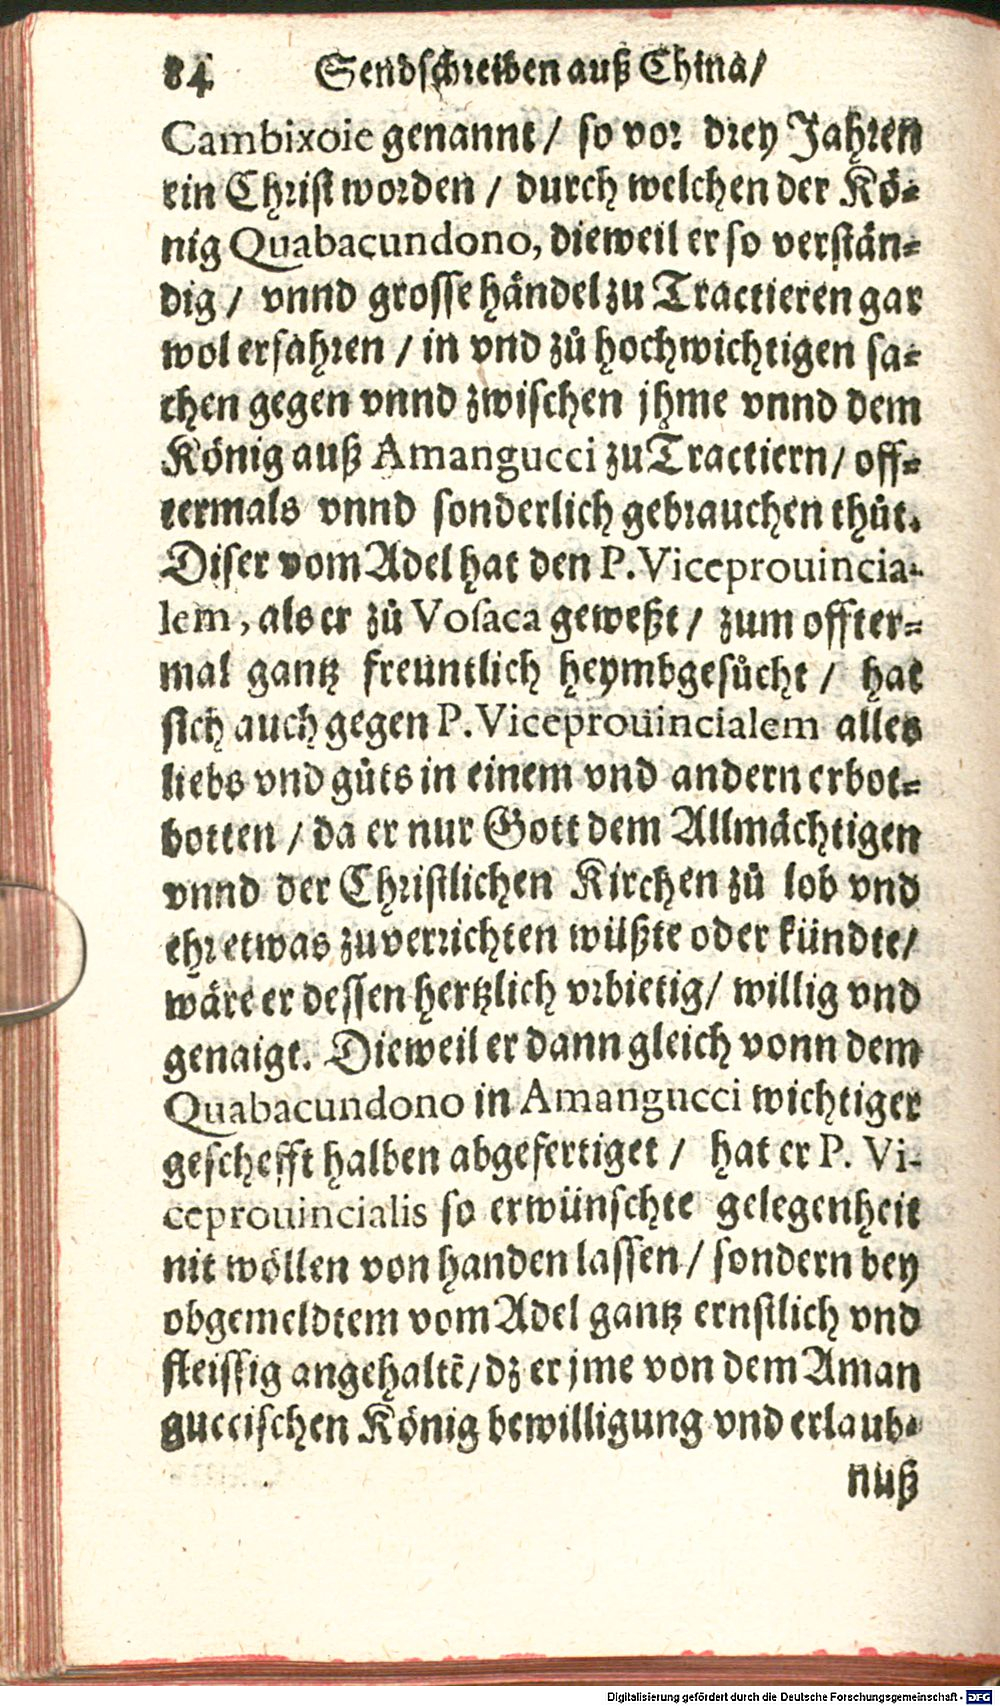 84 Sendschreiben auß China/
Cambixoie genannt / so vor drey Jahren
ein Christ worden / durch welchen der Kö-
nig Quabacundono, dieweil er so verstän-
dig / vnnd grosse händel zu Tractieren gar
wol erfahren / in vnd zů hochwichtigen sa-
chen gegen vnnd zwischen jhme vnnd dem
König auß Amangucci zu Tractiern / off-
termals vnnd sonderlich gebrauchen thůt.
Diser vom Adel hat den P. Viceprouincia-
lem, als er zů Vosaca geweßt / zum offter-
mal gantz freuntlich heymbgesůcht / hat
sich auch gegen P. Viceprouincialem alles
liebs vnd gůts in einem vnd andern erbot-
botten / da er nur Gott dem Allmächtigen
vnnd der Christlichen Kirchen zů lob vnd
ehr etwas zuverrichten wüßte oder kündte/
wäre er dessen hertzlich vrbietig / willig vnd
genaigt. Dieweil er dann gleich vonn dem
Quabacundono in Amangucci wichtiger
geschefft halben abgefertiget / hat er P. Vi-
ceprouincialis so erwünschte gelegenheit
nit wöllen von handen lassen / sondern bey
obgemeldtem vom Adel gantz ernstlich vnd
fleissig angehaltē/ dz er jme von dem Aman
guccischen König bewilligung vnd erlaub-
nuß
Digitalisierung gefördert durch die Deutsche Forschungsgemeinschaft - DFG